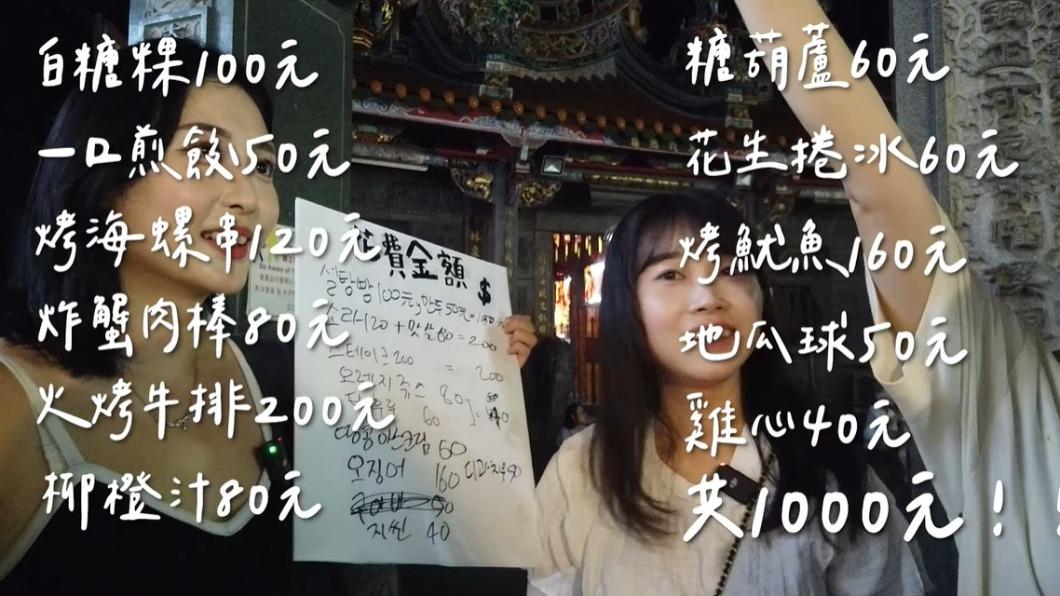 白糖粿100元
一口煎餃50元
烤海螺串120元
炸蟹肉棒80元
火烤牛排200元
柳橙汁80元
糖葫蘆60元
花生捲冰60元
烤魷魚160元
地瓜球50元
雞心40元
共1000元！
花費金額 $
설탕밤 100元, 만두 50元 = 150元
소라 120 + 맛살 80 = 200
스테이크 200 = 200
오렌지 쥬스 80
60
땅콩아이스크림 60
오징어 160
50
40